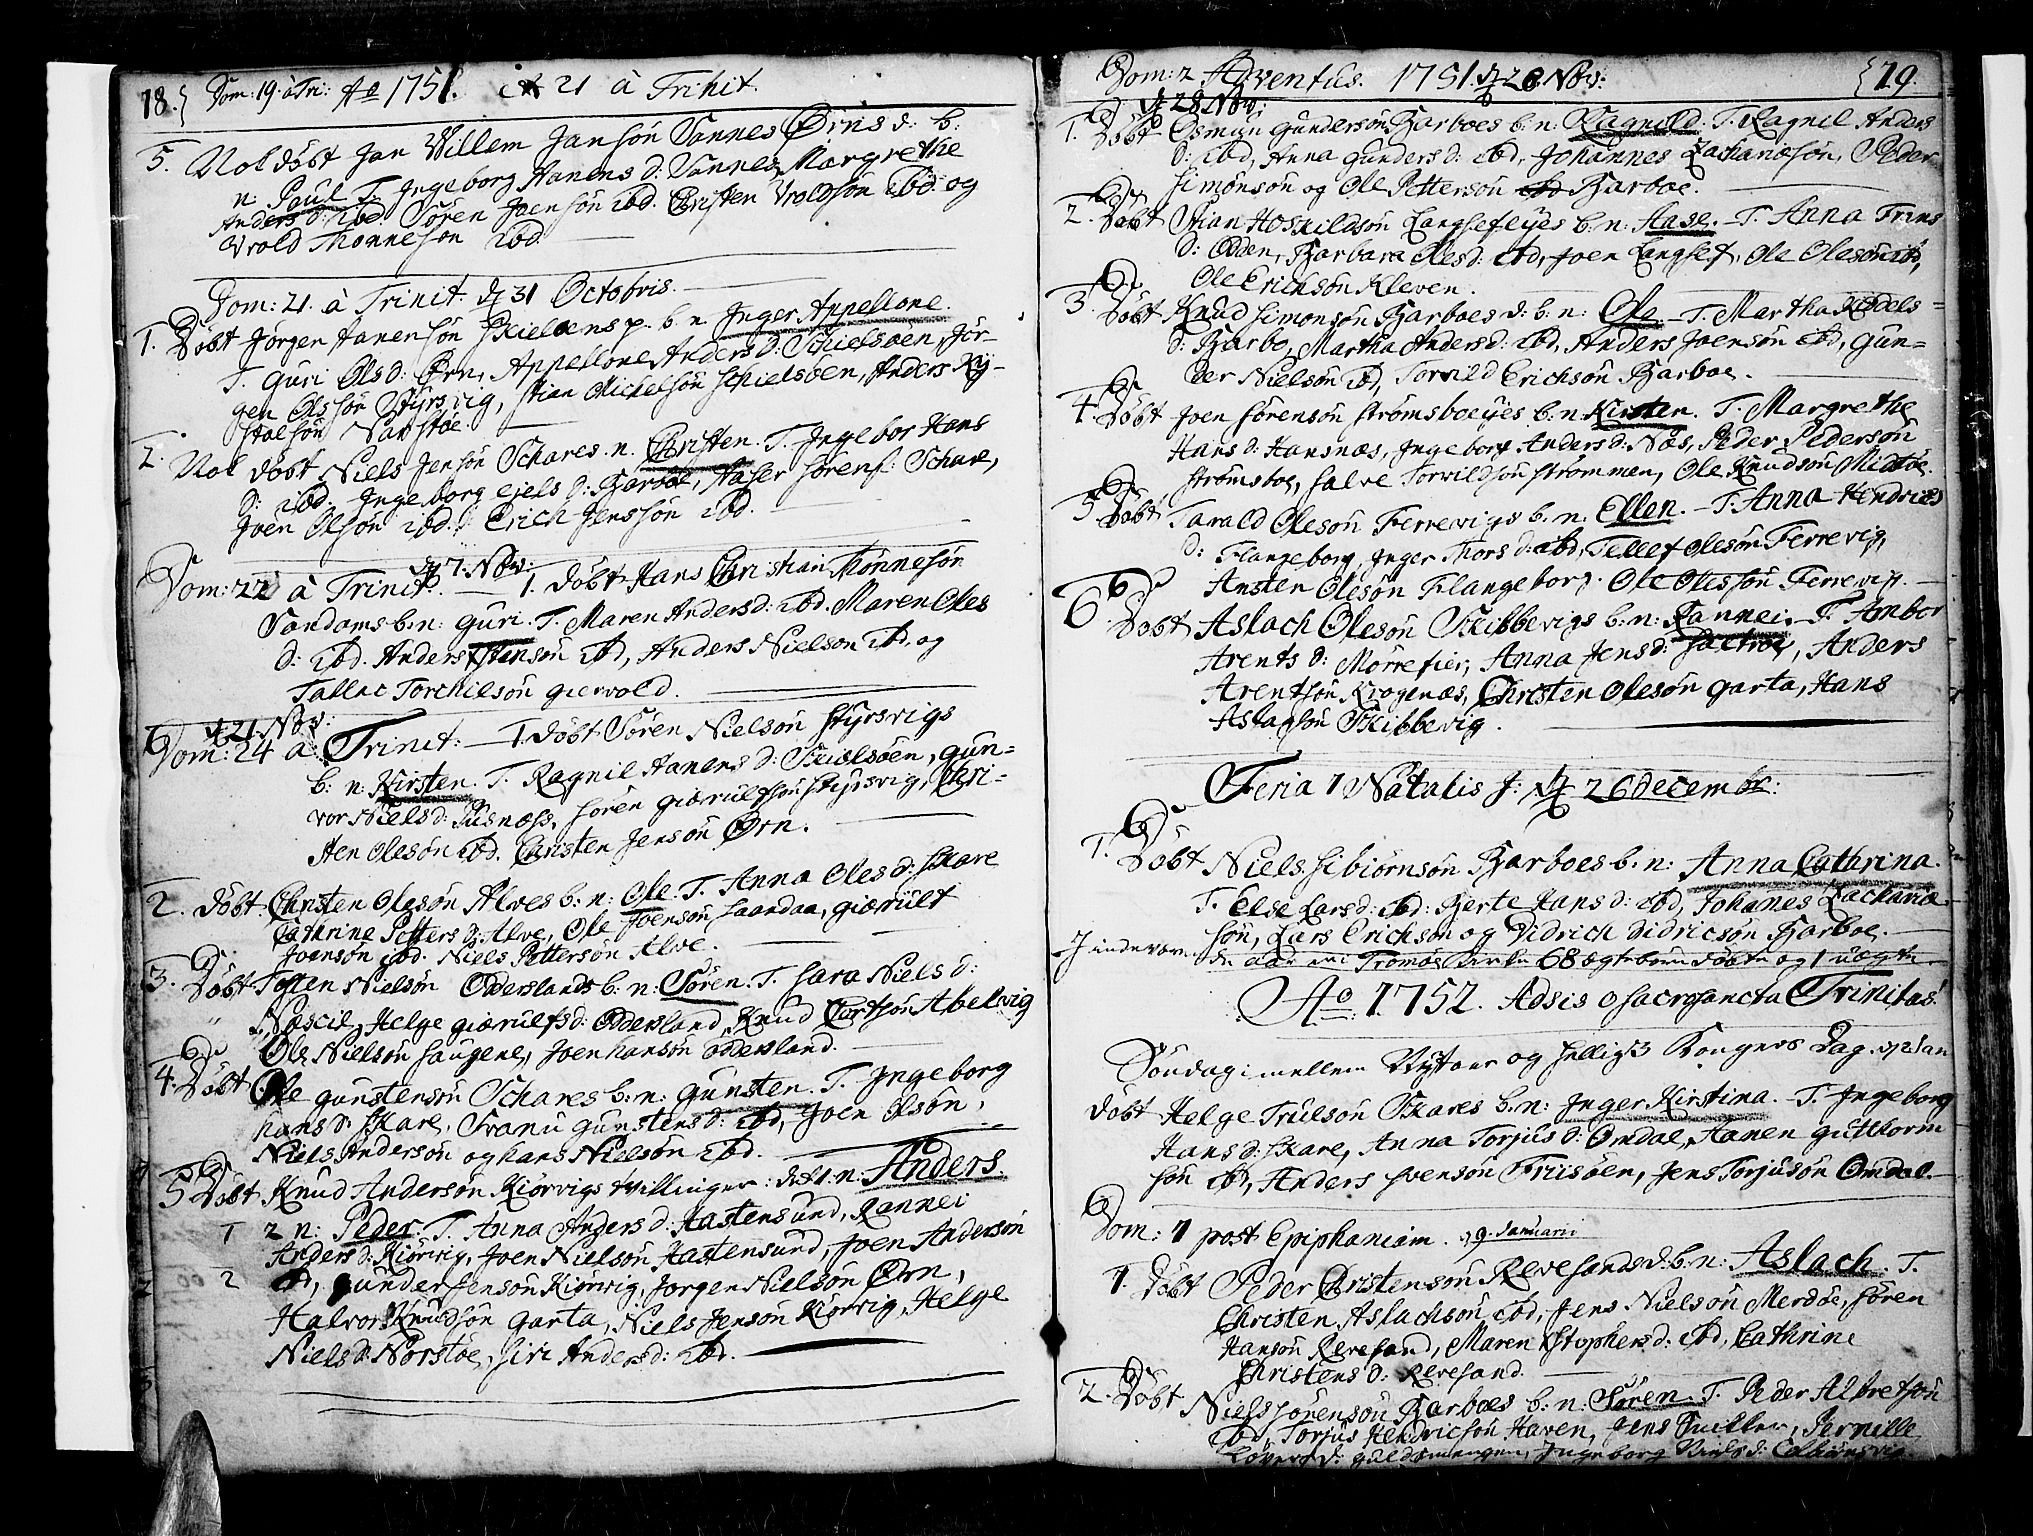 18. Dom: 19 à Tri: Ao 1751. et 21 à Trinit.
5. Nok döbt Jan Willem Jansön Sannes Örns d: b:
n Poul T. Ingeborg Aanens d: Sannes, Margrethe
Anders d: ibd Sören Joensön ibd. Christen Vroldsön ibd. og
Vrold Thommesön ibd.
Dom: 21. à Trinit. d 31 Octobris.
1. Döbt Jörgen Aanensön Skielöens p. b. n Inger Appellone.
T. Guri Ols d: Örn, Appellone Anders d: Schielsöen, Jör-
gen Olssön Styrsvig, Stian Michelsön Schielsöen, Anders Ry-
stoelsön Narstöe.
2. Nok döbt Niels Jensön Schares n. Christen. T. Ingebor Hans
d: ibd. Ingeborg Niels d: Barboe, Aasler Sörens: Schare,
Joen Olsön ibd. Erich Jenssön ibd.
d 7. Nov:
Dom: 22 à Trinit. 1. Döbt Hans Christian Tönnesön
Sandoms b: n: Guri. T. Maren Anders d: ibd. Maren Oles
d: ibd. Anders Stensön ibd, Anders Nielson ibd, og
Tallac Torchilsön Giervold.
d 21. Nov:
Dom: 24 à Trinit: 1. Döbt Sören Nielsön Styrsvigs
b: n: Kirsten. T. Ragnil Aanens d: Skielsöen, Gun-
vor Niels d: Pusnæss, Sören Gierulfsön Styrsvig, Chri-
sten Olesön ibd. Christen Jensön Örn.
2. Döbt: Christen Olesön Alves b: n: Ole. T. Anna Oles d: Skare
Cathrine Petters d: Alve, Ole Joensön Saandaa, Gierült
Joensön ibd. Niels Pettersön Alve.
3. Döbt Tosten Nielsön Odderslands b: n: Sören. T. Sara Niels d:
Næscil, Helge Gierulfs d: Odderland, Knud Cortsön Abelvig
Ole Nielsön Saugene, Joen Hansön Odderland.
4. Döbt Ole Gunstensön Schares b: n: Gunsten. T. Ingeborg
Hans d: Skare, Svanu Gunstens d: ibd, Joen Olsön,
Niels Andersön og Hans Nielsön ibd.
5. Döbt Knud Andersön Kiörvigs tvillinger: det 1. n: Anders.
1 2 n: Peder. T. Anna Anders d: Hastensund, Rannei
Anders d: Kiörvig, Joen Nielsön Hastensund, Joen Andersön
2 ibd, Gunder Jensön Kiörvig, Jörgen Nielsön Örn,
Halvor Knudsön Garta, Niels Jensön Kiörvig, Helge
Niels d: Norstöe, Siri Anders d: ibd.
Dom: 2 Adventus. 1751. d 28 Nov: 19.
d 28 Nov:
1. Döbt Osmun Gundersön Barboes b: n: Ragnild. T. Ragnil Anders
d: ibd, Anna Gunders d: ibd, Johannes Zachariæsön, Peder
Simonsön og Ole Pettersön Barboe.
2. Döbt Stian Hoskildsön Langsefeyes b: n: Aase. T. Anna Trins
d: Odden, Barbara Oles d: ibd, Joen Langsef, Ole Olesön ibd,
Ole Erichsön Kleven.
3. Döbt Knud Simonsön Barboes d: b: n: Ole. T. Martha Kiødels-
d: Barbo, Martha Anders d: ibd, Anders Joensön ibd, Gun-
der Nielsön ibd, Torvild Erichsön Barboe.
4. Döbt Joen Sörensön Strömsboeyes b: n. Kirsten. T. Margrethe
Hans d: Hansnæs, Ingeborg Anders d: Næs, Peder Pedersön
Strömsboe, Salve Torvildsön Strömmen, Ole Knudsön Midtöe.
5. Döbt Tarald Olesön Ferrevigs b: n. Ellen. T. Anna Hendrics
d: Flangeborg, Inger Thors d: ibd, Tellef Olesön Ferrevig,
Ansten Olesön Flangeborg. Ole Olessön Ferrevig.
6. Döbt Aslach Olesön Skibbevigs b: n: Rannei. T. Ambor
Arents d: Mörrefier, Anna Jens d: Sactroe, Anders
Arentsön Krogenæs, Christen Olesön Garta, Hans
Aslaghsön Skibbevig.
Feria 1 Natalis J: d 26 Decembr:
1. Döbt Niels Sibiörnsön Barboes b: n: Anna Cathrina.
T. Else Lars d: ibd: Berte Hans d: ibd, Johanes Zachariæ
sön, Lars Erichsön og Didrich Didricsön Barboe.
I indeværen-
de aar er i Tromøe Kirke 68 ægte börn döbte og 1 uægte
Ao 1752. Adsis o Sacrosancta Trinitas!
Söndag imellem Nytaar og Hellig 3 Kongers Dag. d 2 Jan
Döbt Helge Trulsön Skares b: n: Inger Kirstina. T. Ingeborg
Hans d: Skare, Anna Torjus d: Omdal, Aanen Guttorm
sön ibd, Anders Svensön Friisöen, Jens Torjusön Omdal.
Dom: 1 post Epiphaniam. d 9. Januarii
1. Döbt Peder Christensön Revesands d: b: n: Aslach. T.
Christen Aslachsön ibd, Jens Nielsön Merdöe, Sören
Hansön Revesand, Maren Stophers d: ibd, Cathrine
Christens d: Revesand.
2. Döbt Niels Sörensön Barboes b: n: Sören. T. Peder Albretsön
ibd, Torjus Hendricsön Haven, Jens Smitter, Pernille